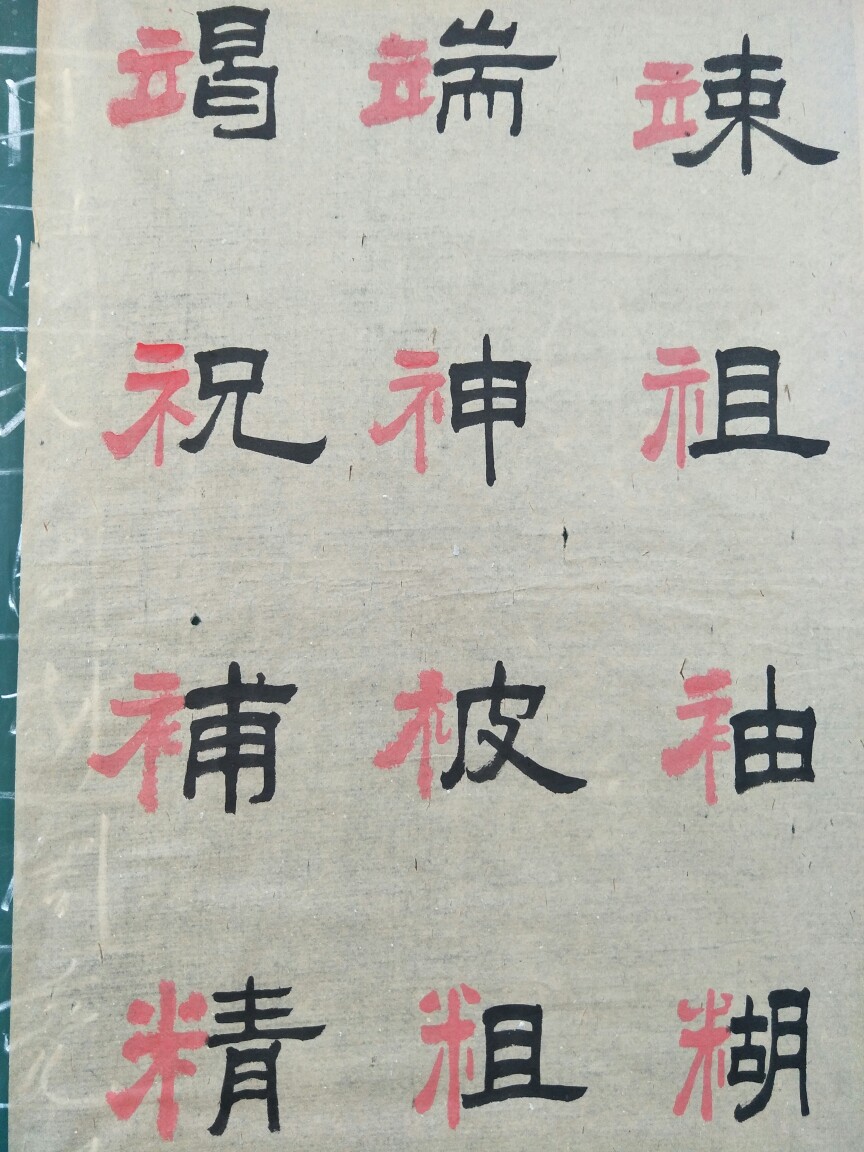 竭端竦
祝神祖
補被袖
精粗糊